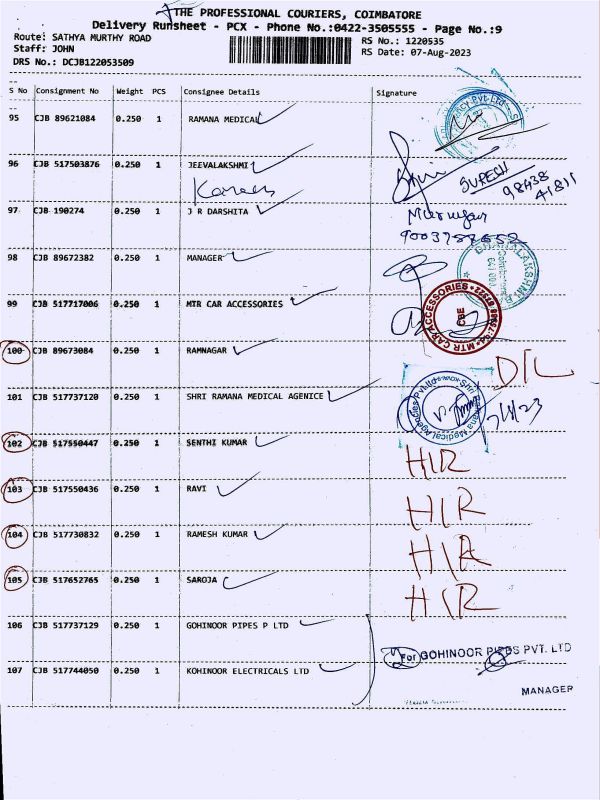 THE PROFESSIONAL COURIERS, COIMBATORE
Delivery Runsheet - PCX - Phone No.:0422-3505555 - Page No.:9
Route: SATHYA MURTHY ROAD
Staff: JOHN
DRS No.: DCJB122053509
RS No.: 1220535
RS Date: 07-Aug-2023
S No Consignment No Weight PCS Consignee Details Signature
95 CJB 89621084 0.250 1 RAMANA MEDICAL
96 CJB 517503876 0.250 1 JEEVALAKSHMI
SURESH
98438
41811
97 CJB 190274 0.250 1 J R DARSHITA
Murugan
98 CJB 89672382 0.250 1 MANAGER
99 CJB 517717006 0.250 1 MTR CAR ACCESSORIES
MTR CAR ACCESSORIES
CBE
100 CJB 89673084 0.250 1 RAMNAGAR
D/L
101 CJB 517737120 0.250 1 SHRI RAMANA MEDICAL AGENICE
Shri Ramana Medical Agencies Pvt Ltd
102 CJB 517550447 0.250 1 SENTHI KUMAR
H/R
103 CJB 517550436 0.250 1 RAVI
H/R
104 CJB 517730832 0.250 1 RAMESH KUMAR
H/R
105 CJB 517652765 0.250 1 SAROJA
H/R
106 CJB 517737129 0.250 1 GOHINOOR PIPES P LTD
For GOHINOOR PIPES PVT. LTD
107 CJB 517744050 0.250 1 KOHINOOR ELECTRICALS LTD
MANAGER